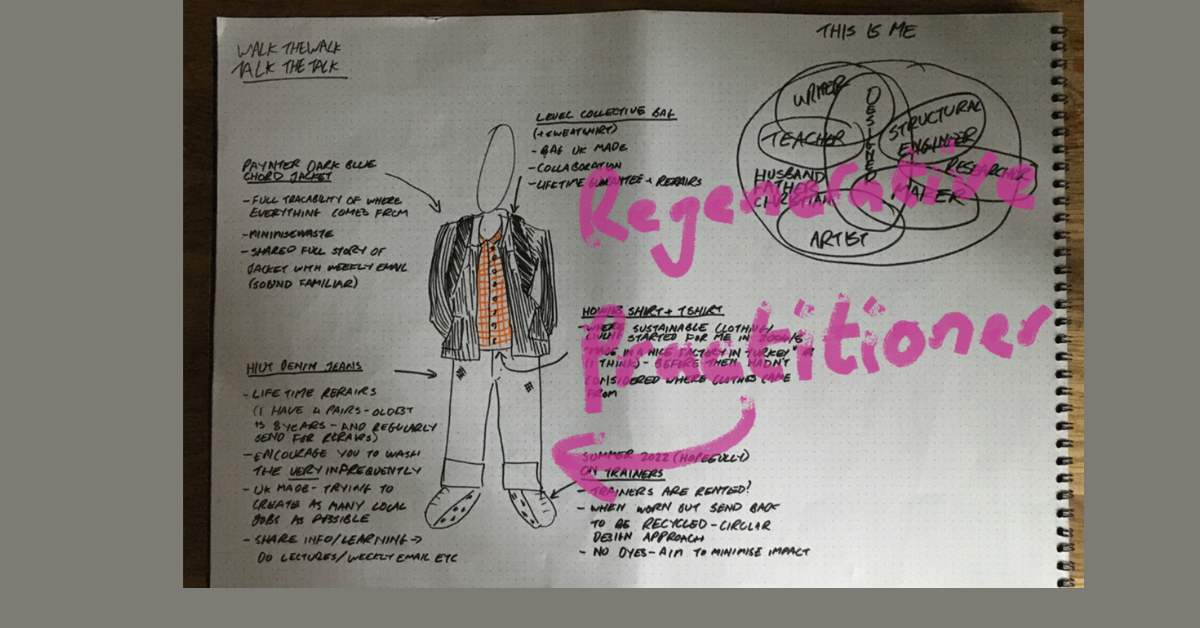 WALK THE WALK
TALK THE TALK
THIS IS ME
WRITER
DESIGNER
TEACHER
STRUCTURAL
ENGINEER
RESEARCHER
HUSBAND
FATHER
CHRISTIAN
MAKER
ARTIST
LEVEL COLLECTIVE BAG
(+ SWEATSHIRT)
- BAG UK MADE
- COLLABORATION
- LIFETIME GUARANTEE + REPAIRS
PAYNTER DARK BLUE
CHORD JACKET
- FULL TRACABILITY OF WHERE
EVERYTHING COMES FROM
- MINIMISE WASTE
- SHARED FULL STORY OF
JACKET WITH WEEKLY EMAIL
(SOUND FAMILIAR)
Regenerative
Practitioner
HOWIES SHIRT + TSHIRT
- WHERE SUSTAINABLE CLOTHING/
LIVING STARTED FOR ME IN
"MADE IN A NICE FACTORY IN TURKEY"
(I THINK) - BEFORE THEN HADN'T
CONSIDERED WHERE CLOTHES CAME
FROM
HIUT DENIM JEANS
- LIFETIME REPAIRS
(I HAVE 4 PAIRS - OLDEST
IS 8 YEARS - AND REGULARLY
SEND FOR REPAIRS)
- ENCOURAGE YOU TO WASH
THE VERY INFREQUENTLY
- UK MADE - TRYING TO
CREATE AS MANY LOCAL
JOBS AS POSSIBLE
- SHARE INFO/LEARNING →
DO LECTURES/WEEKLY EMAIL ETC
SUMMER 2022 (HOPEFULLY)
ON TRAINERS
- TRAINERS ARE RENTED!
- WHEN WORN OUT SEND BACK
TO BE RECYCLED - CIRCLAR
DESIGN APPROACH
- NO DYES - AIM TO MINIMISE IMPACT